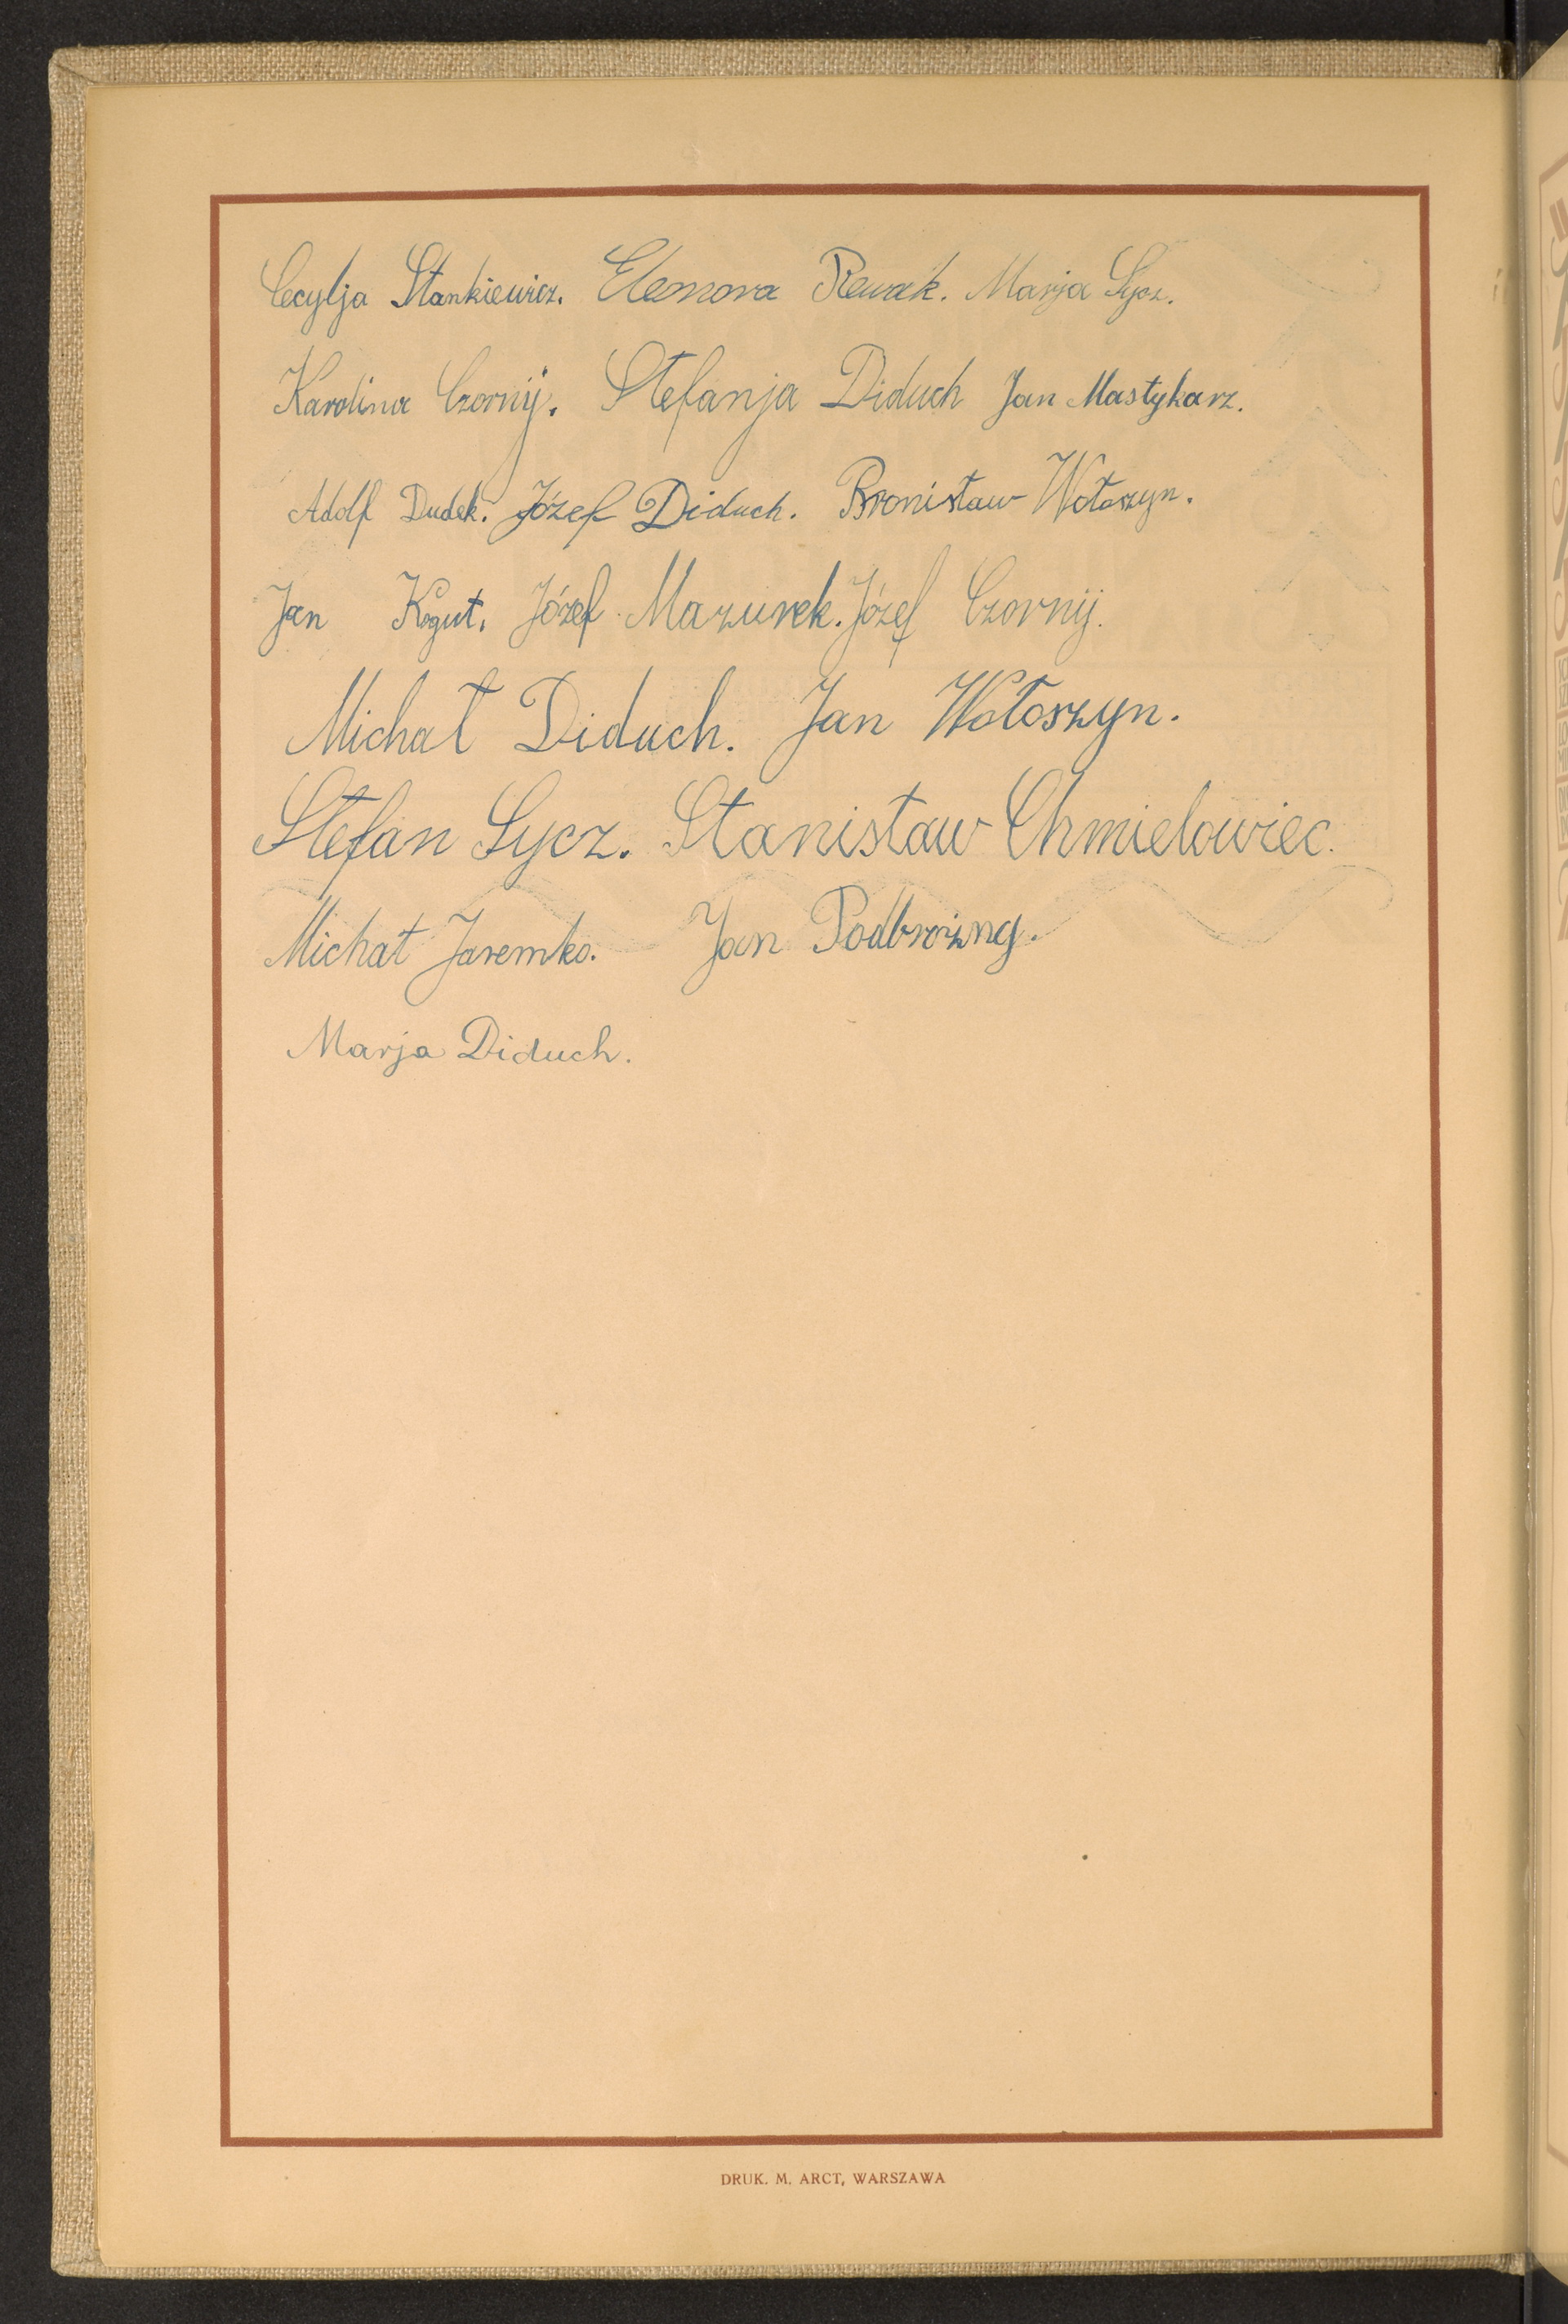 Cecylja Stankiewicz. Eleonora Rewak. Marja Sycz.
Karolina Czornij. Stefanja Diduch Jan Mastykarz.
Adolf Dudek. Józef Diduch. Bronisław Wołoszyn.
Jan Kogut. Józef Mazurek. Józef Czornij.
Michał Diduch. Jan Wołoszyn.
Stefan Sycz. Stanisław Chmielowiec.
Michał Jaremko. Jan
Marja Diduch.
DRUK. M. ARCT, WARSZAWA